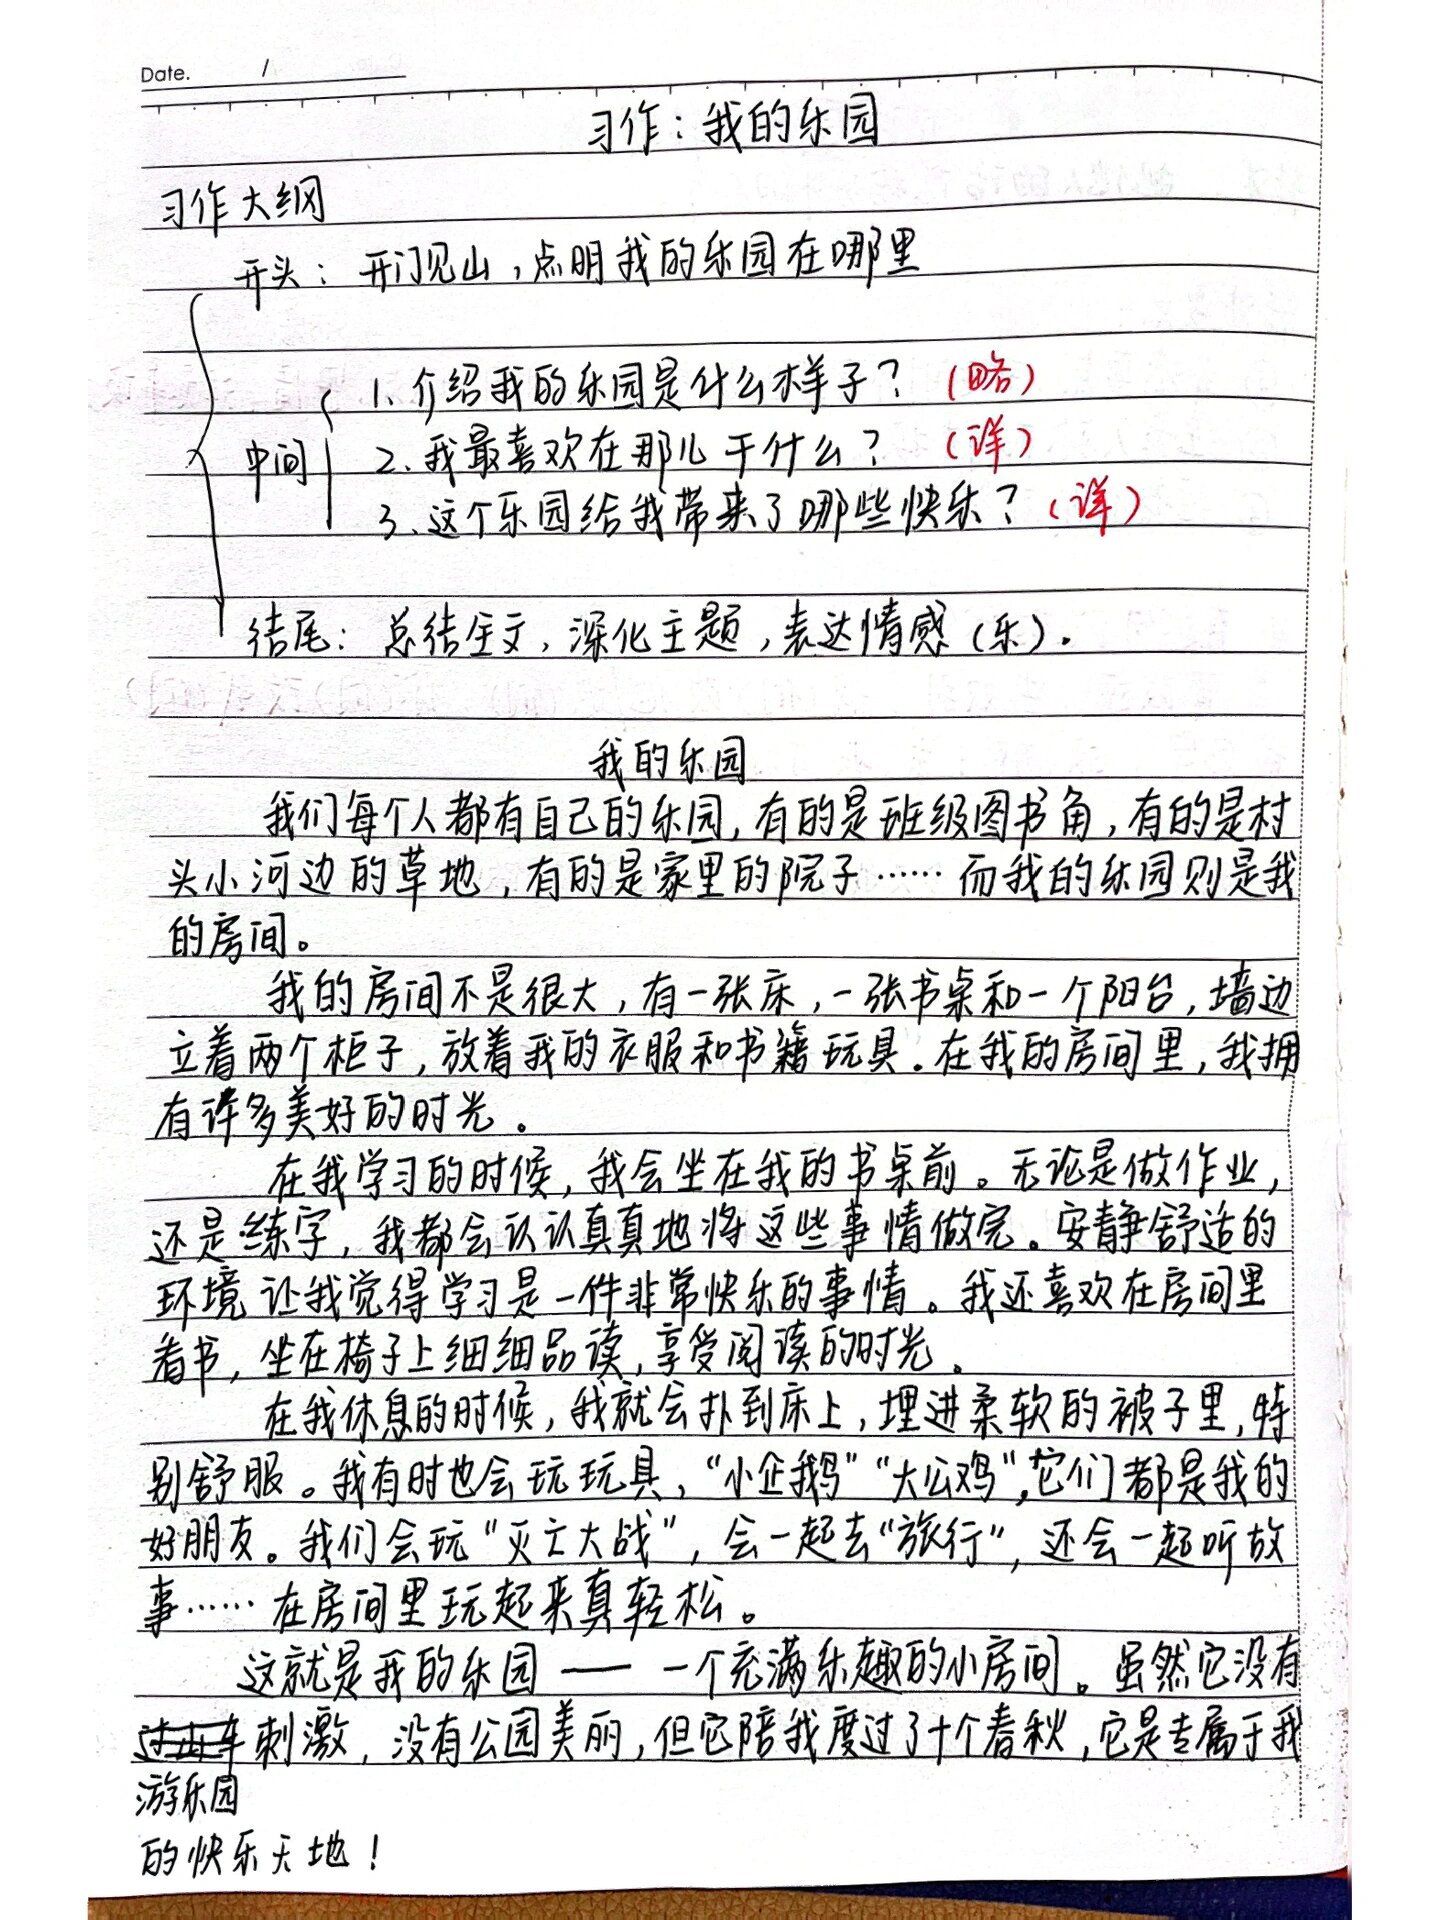 Date. /
习作：我的乐园
习作大纲
开头：开门见山，点明我的乐园在哪里
1、介绍我的乐园是什么样子？（略）
中间 2、我最喜欢在那儿干什么？（详）
3、这个乐园给我带来了哪些快乐？（详）
结尾：总结全文，深化主题，表达情感（乐）。
我的乐园
我们每个人都有自己的乐园，有的是班级图书角，有的是村
头小河边的草地，有的是家里的院子……而我的乐园则是我
的房间。
我的房间不是很大，有一张床，一张书桌和一个阳台，墙边
立着两个柜子，放着我的衣服和书籍玩具。在我的房间里，我拥
有许多美好的时光。
在我学习的时候，我会坐在我的书桌前。无论是做作业，
还是练字，我都会认认真真地将这些事情做完。安静舒适的
环境让我觉得学习是一件非常快乐的事情。我还喜欢在房间里
看书，坐在椅子上细细品读，享受阅读的时光。
在我休息的时候，我就会扑到床上，埋进柔软的被子里，特
别舒服。我有时也会玩玩具，“小企鹅”“大公鸡”，它们都是我的
好朋友。我们会玩“灭亡大战”，会一起去“旅行”，还会一起听故
事……在房间里玩起来真轻松。
这就是我的乐园——一个充满乐趣的小房间。虽然它没有
过山车刺激，没有公园美丽，但它陪我度过了十个春秋，它是专属于我
游乐园
的快乐天地！